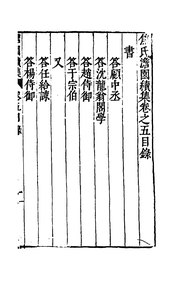 焦氏澹園續集卷之五目錄
書
答顧中丞
答沈龍翁閣學
答趙侍御
答于宗伯
又
答任給諫
答楊侍御